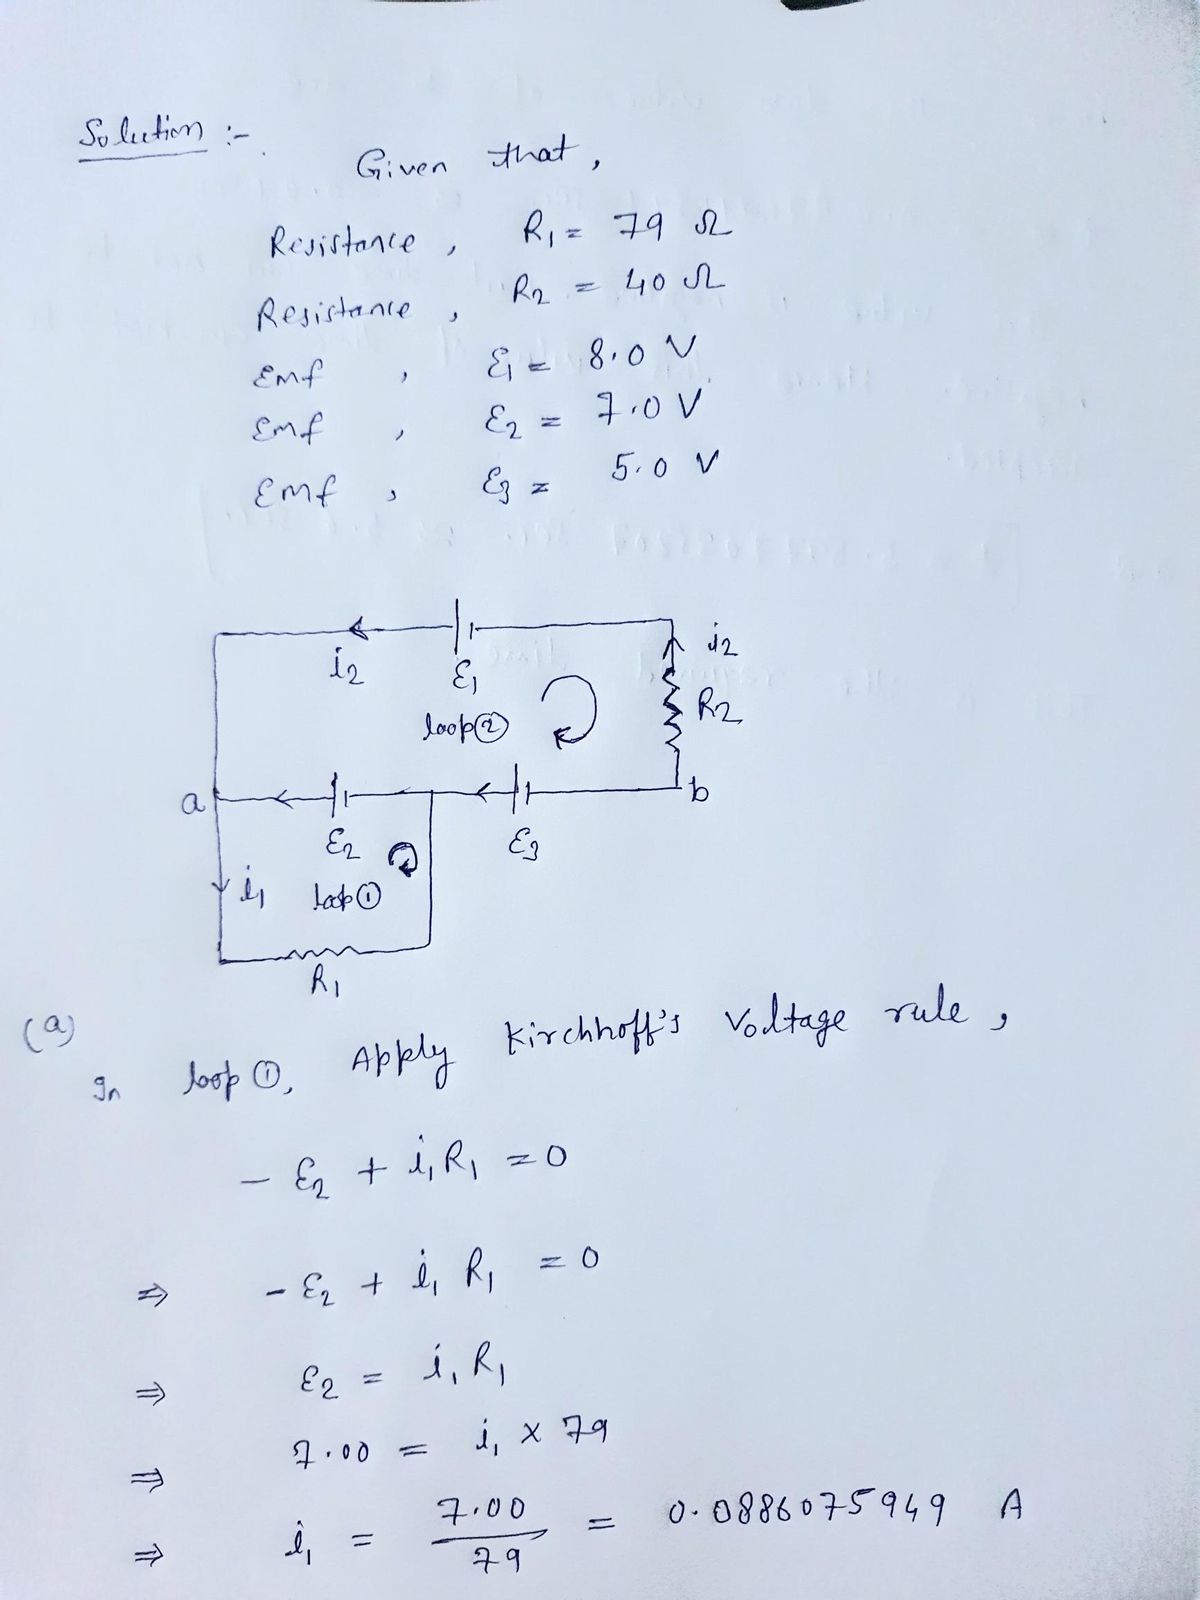 Solution :-
Given that,
Resistance, R₁ = 79 Ω
Resistance, R₂ = 40 Ω
Emf, ε₁ = 8.0 V
Emf, ε₂ = 7.0 V
Emf, ε₃ = 5.0 V
i₂
i₂
ε₁
R₂
loop ②
a
b
ε₂
ε₃
i₁
loop ①
R₁
(a)
In loop ①, Apply Kirchhoff's Voltage rule,
- ε₂ + i₁ R₁ = 0
⇒ - ε₂ + i₁ R₁ = 0
⇒ ε₂ = i₁ R₁
⇒ 7.00 = i₁ × 79
⇒ i₁ = 7.00 / 79 = 0.0886075949 A